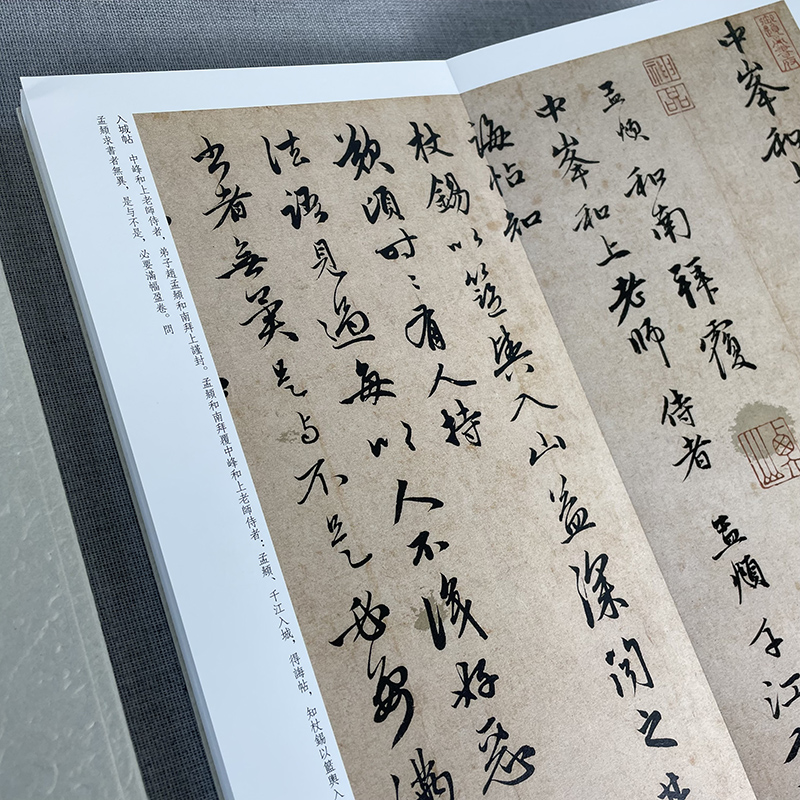 中峯和上
神品
孟頫和南拜覆
中峯和上老師侍者 孟頫千江
誨帖知
杖錫以籃輿入山益深間之
歎頃時〻有人持
法語見過每以人不淺好惡
書者無異是与不是必要滿
入城帖 中峰和上老師侍者，弟子趙孟頫和南拜上謹封。孟頫和南拜覆中峰和上老師侍者：孟頫、千江入城，得誨帖，知杖錫以籃輿入
孟頫求書者無異，是与不是，必要滿幅盈卷。問